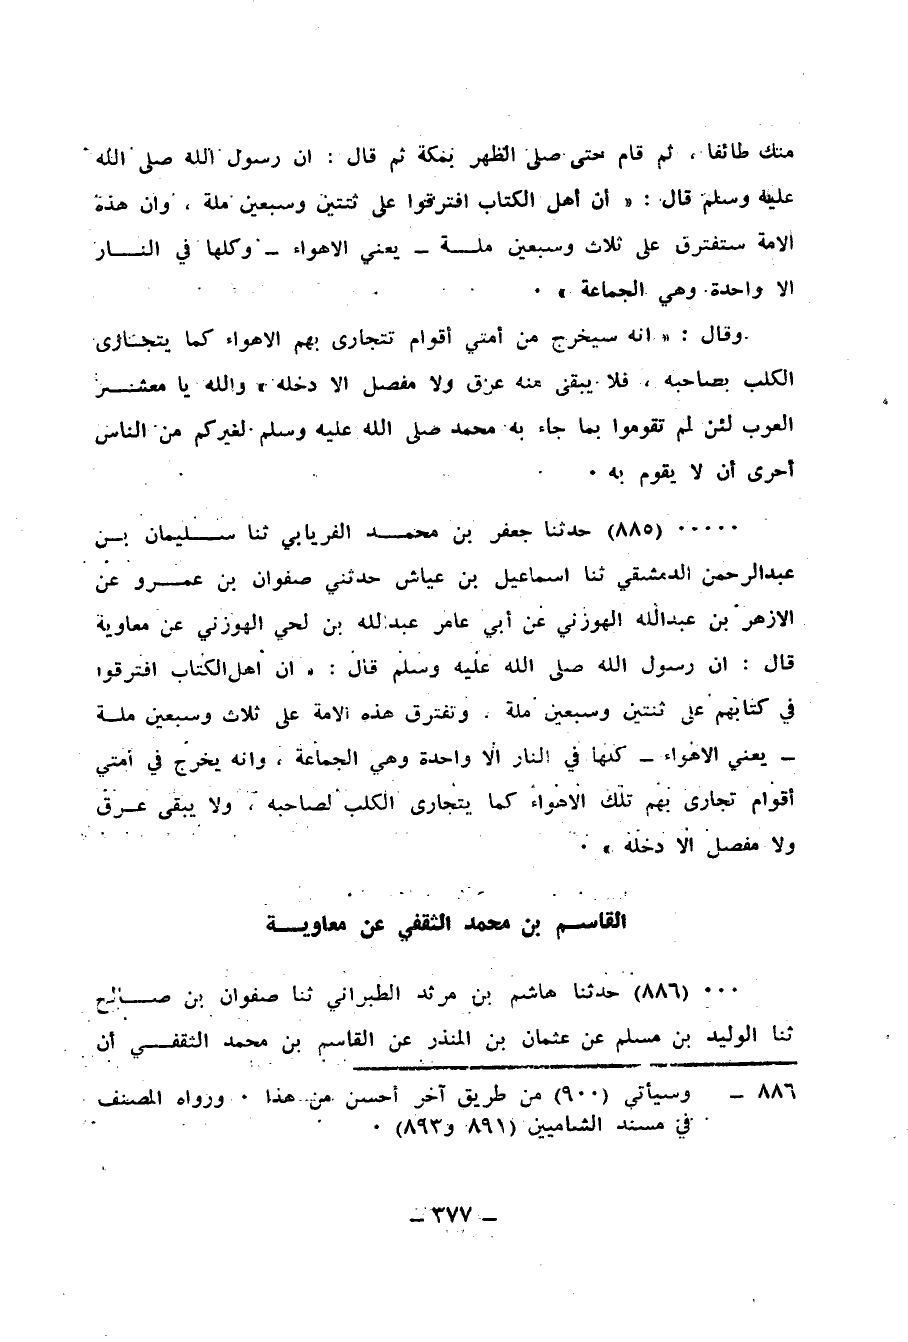 منك طائفا ، ثم قام حتى صلى الظهر بمكة ثم قال : ان رسول الله صلى الله
عليه وسلم قال : « أن أهل الكتاب افترقوا على ثنتين وسبعين ملة ، وان هذه
الامة ستفترق على ثلاث وسبعين ملة – يعني الاهواء – وكلها في النار
الا واحدة وهي الجماعة » ٠
وقال : « انه سيخرج من أمتي أقوام تتجارى بهم الاهواء كما يتجارى
الكلب بصاحبه ، فلا يبقى منه عرق ولا مفصل الا دخله » والله يا معشر
العرب لئن لم تقوموا بما جاء به محمد صلى الله عليه وسلم لغيركم من الناس
أحرى أن لا يقوم به ٠
٠٠٠٠٠ (٨٨٥) حدثنا جعفر بن محمد الفريابي ثنا سليمان بن
عبدالرحمن الدمشقي ثنا اسماعيل بن عياش حدثني صفوان بن عمرو عن
الازهر بن عبدالله الهوزني عن أبي عامر عبدالله بن لحي الهوزني عن معاوية
قال : ان رسول الله صلى الله عليه وسلم قال : « ان أهل الكتاب افترقوا
في كتابهم على ثنتين وسبعين ملة ، وتفترق هذه الامة على ثلاث وسبعين ملة
– يعني الاهواء – كلها في النار الا واحدة وهي الجماعة ، وانه يخرج في أمتي
أقوام تجارى بهم تلك الاهواء كما يتجارى الكلب لصاحبه ، ولا يبقى عرق
ولا مفصل الا دخله » ٠
القاسم بن محمد الثقفي عن معاوية
٠٠٠ (٨٨٦) حدثنا هاشم بن مرثد الطبراني ثنا صفوان بن صالح
ثنا الوليد بن مسلم عن عثمان بن المنذر عن القاسم بن محمد الثقفي أن
٨٨٦ – وسيأتي (٩٠٠) من طريق آخر أحسن من هذا ٠ ورواه المصنف
في مسند الشاميين (٨٩١ و٨٩٣) ٠
– ٣٧٧ –